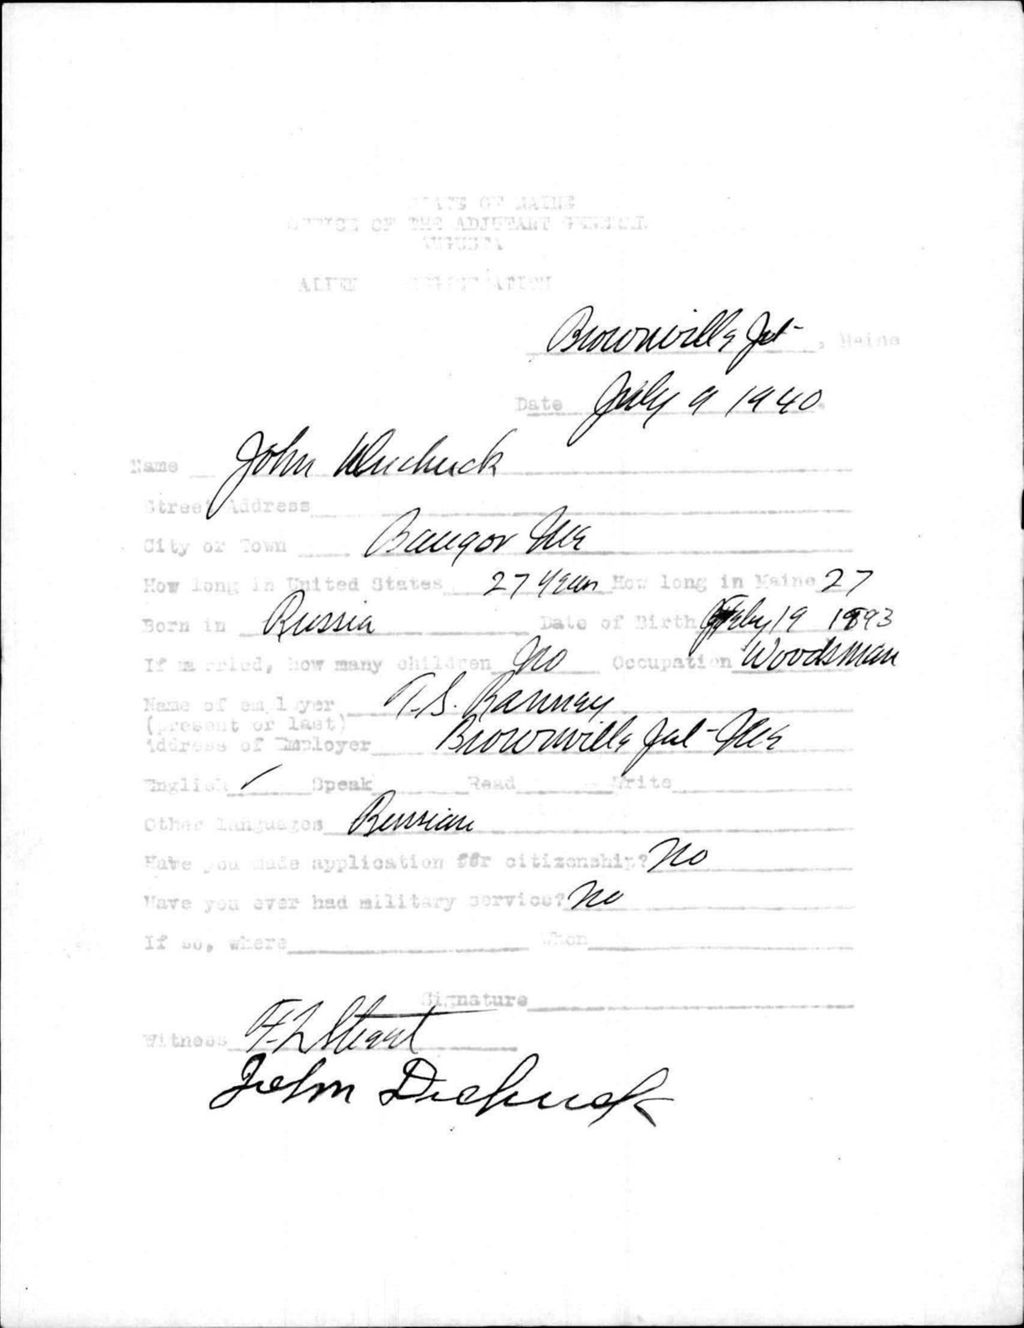 STATE OF MAINE
OFFICE OF THE ADJUTANT GENERAL
AUGUSTA
ALIEN REGISTRATION
Brownville Jct, Maine
Date July 9 1940
Name John
Street Address
City or Town Bangor Me
How long in United States 27 years How long in Maine 27
Born in Russia Date of Birth July 19 1893
If married, how many children No Occupation Woodsman
Name of employer T.S. Ranney
(present or last)
Address of Employer Brownville Jct - Me
English ✓ Speak Read Write
Other languages Russian
Have you made application for citizenship? No
Have you ever had military service? No
If so, where When
Signature
Witness F. L. Stewart
John